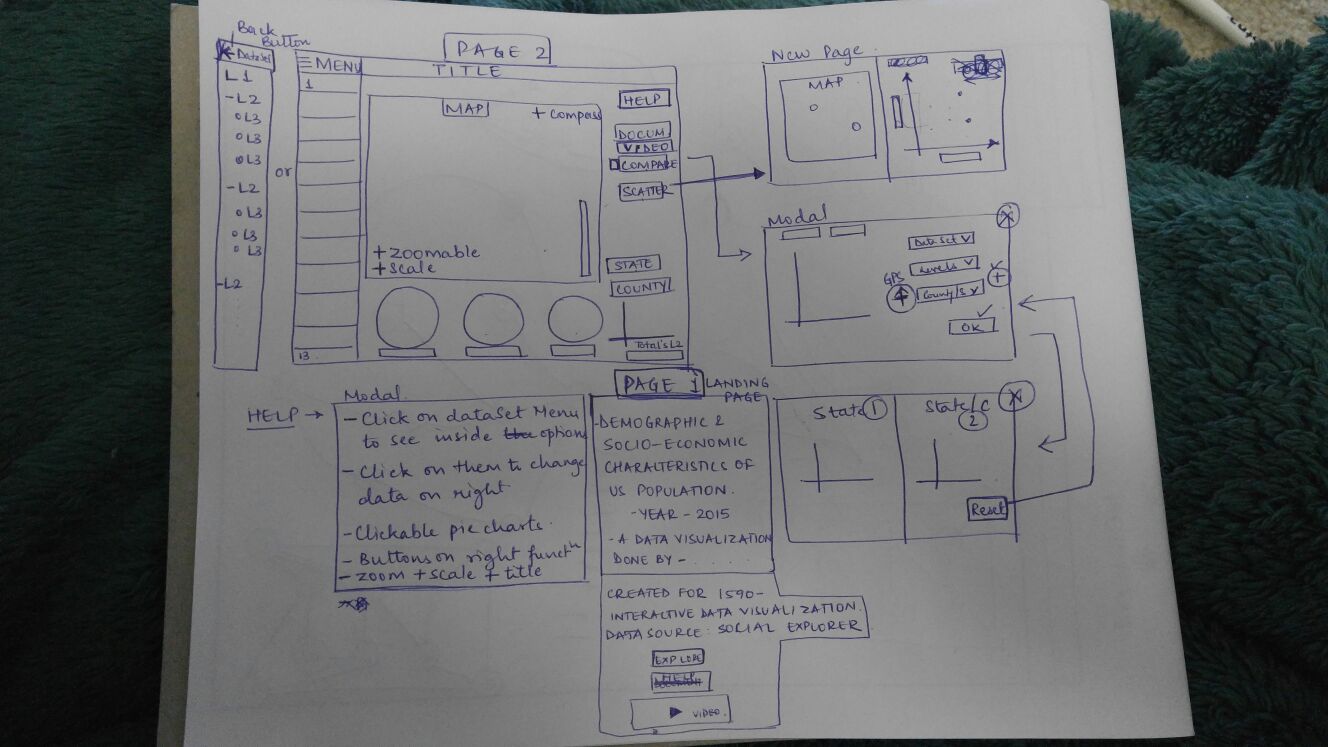 Back
Button
Dataset
L1
-L2
o L3
o L3
o L3
-L2
o L3
o L3
o L3
-L2
or
PAGE 2
MENU
1
13
TITLE
MAP
+ Compass
+ Zoomable
+ Scale
HELP
DOCUM
VIDEO
COMPARE
SCATTER
STATE
COUNTY
Total's L2
New Page
MAP
Modal
X
Data Set
Levels
GPS
County/s
+
OK
State 1
State/C
2
X
Reset
HELP →
Modal
- Click on dataset Menu
to see inside options
- Click on them to change
data on right
- Clickable pie charts.
- Buttons on right functn
- Zoom + scale + title
PAGE 1 LANDING
PAGE
- DEMOGRAPHIC &
SOCIO-ECONOMIC
CHARACTERISTICS OF
US POPULATION.
- YEAR - 2015
- A DATA VISUALIZATION
DONE BY - . . . . . .
CREATED FOR I590-
INTERACTIVE DATA VISUALIZATION.
DATA SOURCE: SOCIAL EXPLORER
EXPLORE
HELP
VIDEO.